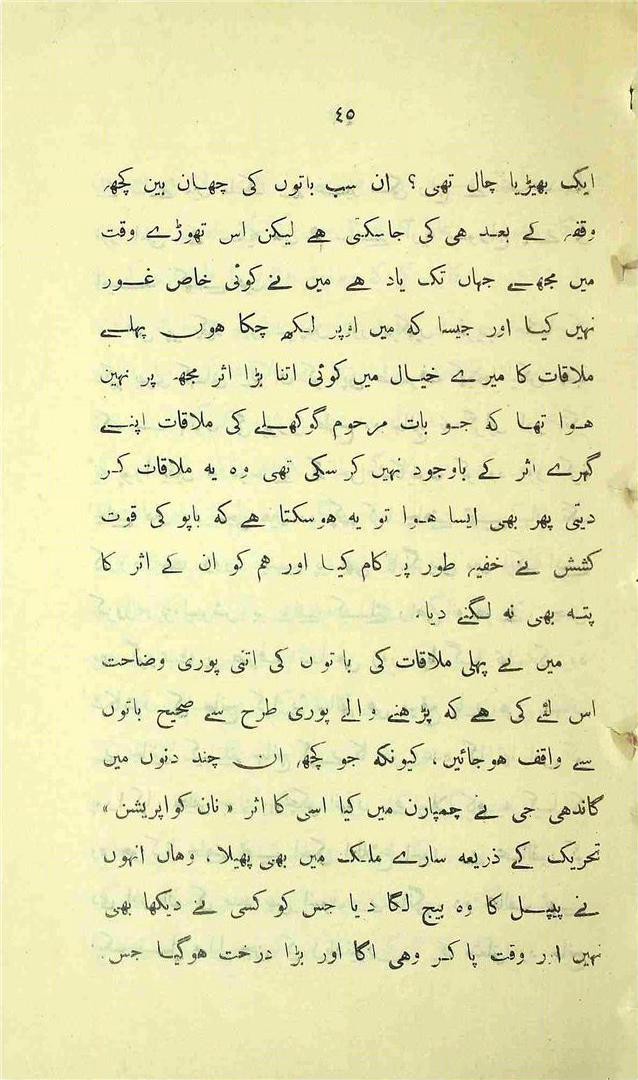 ٤٥
ایک بھیڑیا چال تھی؟ ان سب باتوں کی چھان بین کچھ
وقفہ کے بعد ھی کی جاسکتی ھے لیکن اس تھوڑے وقت
میں مجھے جہاں تک یاد ھے میں نے کوئی خاص غور
نہیں کیا اور جیسا کہ میں اوپر لکھ چکا ھوں پہلے
ملاقات کا میرے خیال میں کوئی اتنا بڑا اثر مجھ پر نہین
ھوا تھا کہ جو بات مرحوم گوکھلے کی ملاقات اپنے
گہرے اثر کے باوجود نہیں کرسکی تھی وہ یہ ملاقات کر
دیتی پھر بھی ایسا ھوا تو یہ ھوسکتا ھے کہ باپو کی قوت
کشش نے خفیہ طور پر کام کیا اور ھم کو ان کے اثر کا
پتہ بھی نہ لگنے دیا۔
میں نے پہلی ملاقات کی باتوں کی اتنی پوری وضاحت
اس لئے کی ھے کہ پڑھنے والے پوری طرح سے صحیح باتوں
سے واقف ھوجائیں، کیونکہ جو کچھ ان چند دنوں میں
گاندھی جی نے چمپارن میں کیا اسی کا اثر «نان کواپریشن»
تحریک کے ذریعہ سارے ملک میں بھی پھیلا، وھاں انہوں
نے پیپل کا وہ بیج لگا دیا جس کو کسی نے دیکھا بھی
نہیں اور وقت پاکر وھی اگا اور بڑا درخت ھوگیا جس